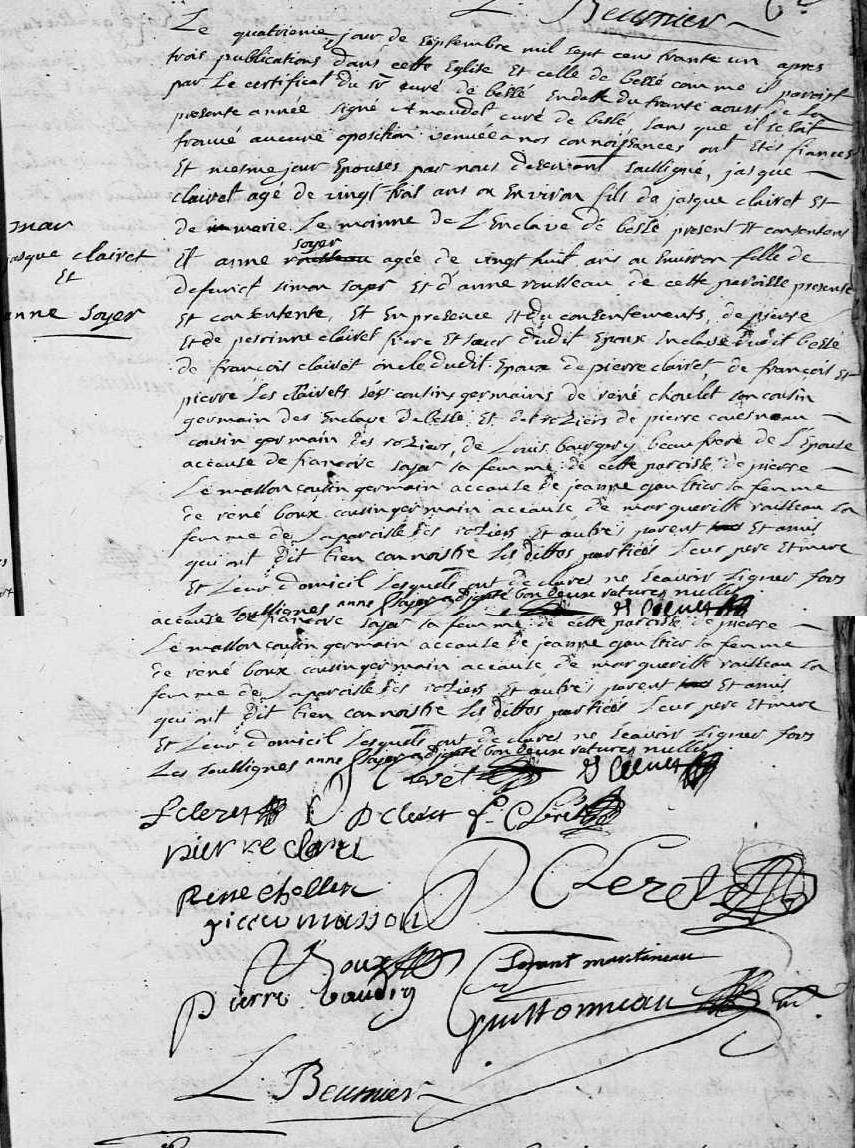 L. Beumier
Le quatrieme jour de septembre mil sept cens trante un apres
trois publications dans cette Eglise Et celle de bessé comme il paroist
par Le certificat du Sr curé de bessé En datte du trante aoust de La
presente année signé Amaudet curé de bessé sans que il se soit
trouvé aucune oposition venuee a nos connoissances ont Etés fiancés
Et mesme jour Epousés par nous deservant soussigné, jasque
clairet agé de vingt trois ans ou Environ fils de jasque clairet Et
de marie Le moinne de L'Enclave de bessé present Et consentens
mar
jasque clairet
Et
anne Soyer
Et anne soyer agée de vingt huit ans ou Environ fille de
defunct simon soyer Et d'anne rousseau de cette paroisse presente
Et consentente, Et En presence Et du consentements de pierre
Et de perrinne clairet frere Et sœur dudit Epoux Enclave dudit bessé
de françois clairet oncle dudit Epoux de pierre clairet, de françois Et
pierre Les clairets ses cousins germains de rené choulet son cousin
germain des Enclave de bessé Et des roziers de pierre
cousin germain des roziers, de Louis beaufrere de L'Epouse
accause de françoise soyer sa femme de cette paroisse de pierre
Le masson cousin germain accause de jeanne gaultier sa femme
de rené boux cousin germain accause de margueritte rousseau sa
femme de La paroisse des roziers Et autres parent Et amis
qui ont dit bien connoistre Les dittes parties Leur pere Et mere
Et Leur domicil Lesquels ont declarés ne sçavoir signer fors
Les soussignes anne soyer adjouté bon deux ratures nulles
accause de françoise soyer sa femme de cette paroisse de pierre
Le masson cousin germain accause de jeanne gaultier sa femme
de rené boux cousin germain accause de margueritte rousseau sa
femme de La paroisse des roziers Et autres parent Et amis
qui ont dit bien connoistre Les dittes parties Leur pere Et mere
Et Leur domicil Lesquels ont declarés ne sçavoir signer fors
Les soussignes anne soyer adjouté bon deux ratures nulles
Cleret
F Cleret P Cleret f. Cleret
pierre cleret
Rene chollet
P Cleret
pierre masson
R Boux
Pierre
Guittonneau
L. Beumier